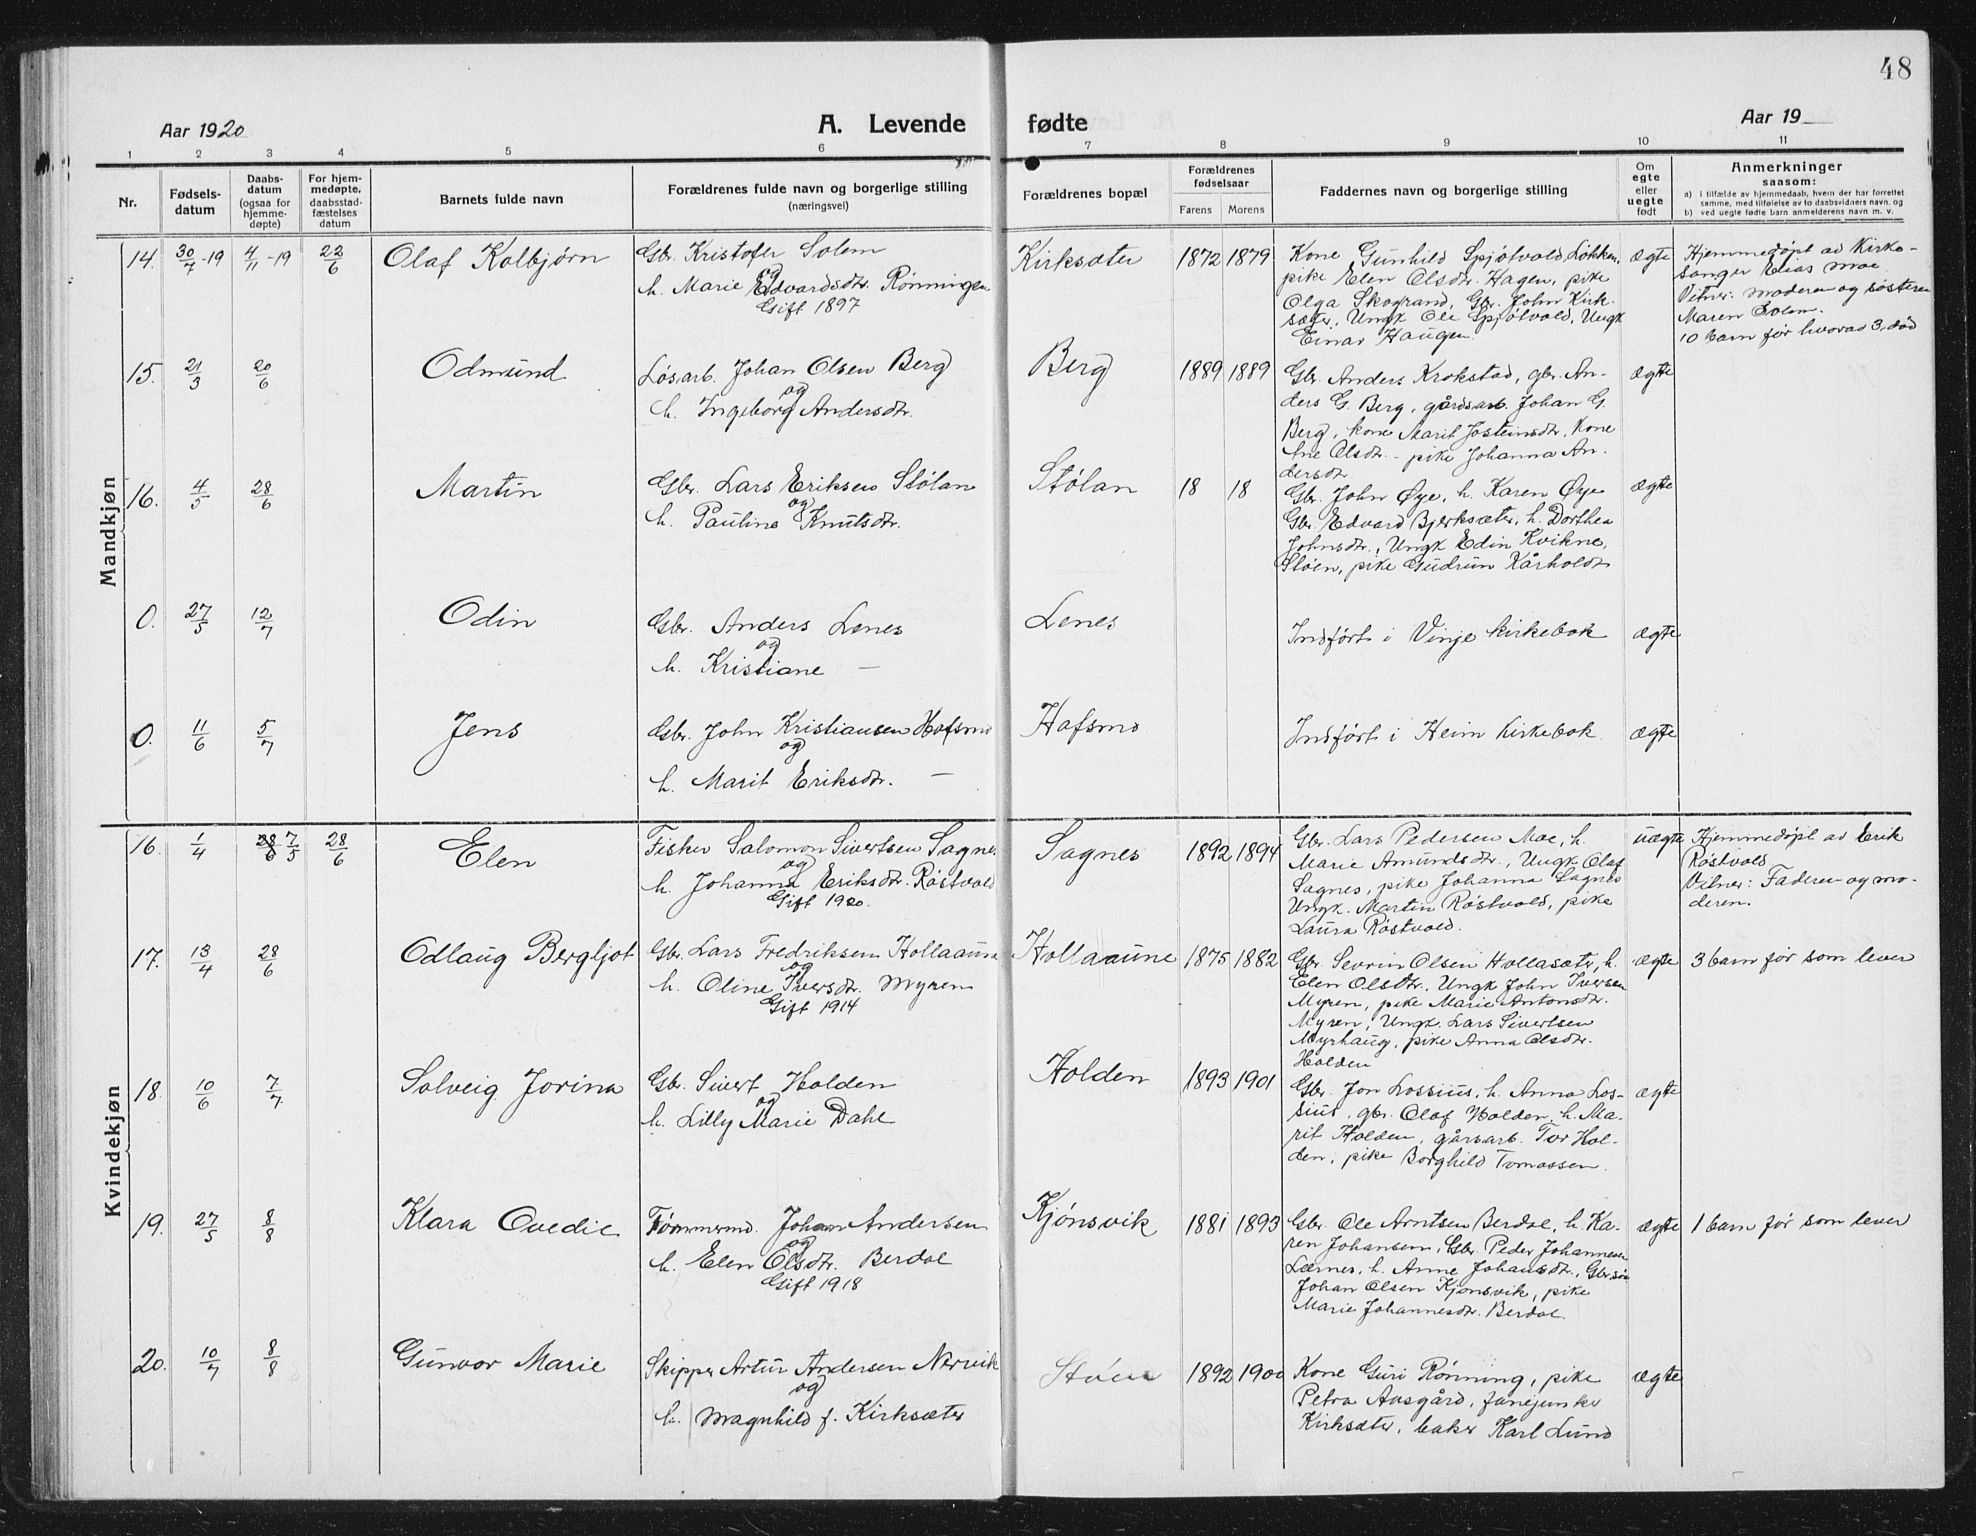 48
Aar 1920
A. Levende
fødte
Aar 19
1 2 3 4 5 6 7 8 9 10 11
Nr.
Fødsels-
datum
Daabs-
datum
(ogsaa for
hjemme-
døpte)
For hjem-
medøpte,
daabsstad-
fæstelses
datum
Barnets fulde navn
Forældrenes fulde navn og borgerlige stilling
(næringsvei)
Forældrenes bopæl
Forældrenes
fødselsaar
Farens Morens
Faddernes navn og borgerlige stilling
Om
egte
eller
uegte
født
Anmerkninger
saasom:
a) i tilfælde av hjemmedaab, hvem der har forrettet
samme, med tilføielse av to daabsvidners navn, og
b) ved uegte fødte barn anmelderens navn m. v.
Mandkjøn
14. 30/7-19 4/11-19 22/6 Olaf Kolbjørn
Gbr. Kristofer Solem
og
h. Marie Edvardsdtr. Rønningen
Gift 1897
Kirksæter 1872 1879
Kone Gunhild Spjøtvold, Løkken,
pike Elen Olsdtr. Hagen, pike
Olga Skogrand, Gbr. John Kirk-
sæter, Ungk Ole Spjøtvold, Ungk
Einar Haugen
ægte
Hjemmedøpt av Kirke-
sanger Elias Moe
Vitner: moderen og søsteren
Maren Solem.
10 barn før hvorav 3 død
15. 21/3 20/6 Odmund
Løsarb. Johan Olsen Berg
og
h. Ingeborg Andersdtr.
Berg 1889 1889
Gbr. Anders Krokstad, gbr. An-
ders G. Berg, gårdsarb. Johan G.
Berg, kone Marit Josteinsdtr, Kone
Ane Olsdtr. - pike Johanna An-
dersdtr
ægte
16. 4/5 28/6 Martin
Gbr. Lars Eriksen Stølan
og
h. Pauline Knutsdtr.
Stølan 18 18
Gbr. John Øye, h. Karen Øye
Gbr. Edvard Bjerksæter, h. Dorthea
Johnsdtr., Ungk Edin Kvikne,
Støen, pike Gudrun Kårholdt
ægte
0. 27/5 12/7 Odin
Gbr. Anders Lenes
og
h. Kristiane —
Lenes
Indført i Vinje kirkebok
ægte
0. 11/6 5/7 Jens
Gbr. John Kristiansen Hafsmo
og
h. Marit Eriksdtr. —
Hafsmo
Indført i Heim Kirkebok
ægte
Kvindekjøn
16. 1/4 28/6 7/5 28/6 Elen
Fisker Salomon Sivertsen Sagnes
og
h. Johanna Eriksdtr. Røstvold
Gift 1920.
Sagnes 1892 1894
Gbr. Lars Pedersen Moe, h.
Marie Amundsdtr., Ungk Olaf
Sagnes, pike Johanna Sagnes
Ungk. Martin Røstvold, pike
Laura Røstvold.
uægte
Hjemmedøpt av Erik
Røstvold
Vitner: Faderen og mo-
deren.
17. 13/4 28/6 Odlaug Bergljot
Gbr. Lars Fredriksen Hollaaune
og
h. Oline Iversdtr. Myren
Gift 1914
Hollaaune 1875 1882
Gbr. Sevrin Olsen Hollasæter, h.
Elen Olsdtr, Ungk John Iversen
Myren, pike Marie Antonsdtr.
Myren, Ungk. Lars Sivertsen
Myrhaug, pike Anna Olsdtr.
Holden
ægte
3 barn før som lever
18. 10/6 7/7 Solveig Jorina
Gbr. Sivert Holden
og
h. Lilly Marie Dahl
Holden 1893 1901
Gbr. Jon Lossius, h. Anna Los-
sius, gbr. Olaf Holden, h. Ma-
rit Holden, gårsarb. Tor Hol-
den, pike Borghild Tomassen.
ægte
19. 27/5 8/8 Klara Ovedie
Tømmermd. Johan Andersen
og
h. Elen Olsdtr. Berdal
Gift 1918
Kjønsvik 1881 1893
Gbr. Ole Arntsen Berdal, h. Ka-
ren Johansen, Gbr. Peder Johannesen
Lernes, h. Anne Johansdtr., Gbr.søn
Johan Olsen Kjønsvik, pike
Marie Johannesdtr. Berdal.
ægte
1 barn før som lever
20. 10/7 8/8 Gunvor Marie
Skipper Artur Andersen Nervik
og
h. Magnhild f. Kirksæter
Støen 1892 1900
Kone Guri Rønning, pike
Petra Aasgård, fanejunker
Kirksæter, baker Karl Lund
ægte